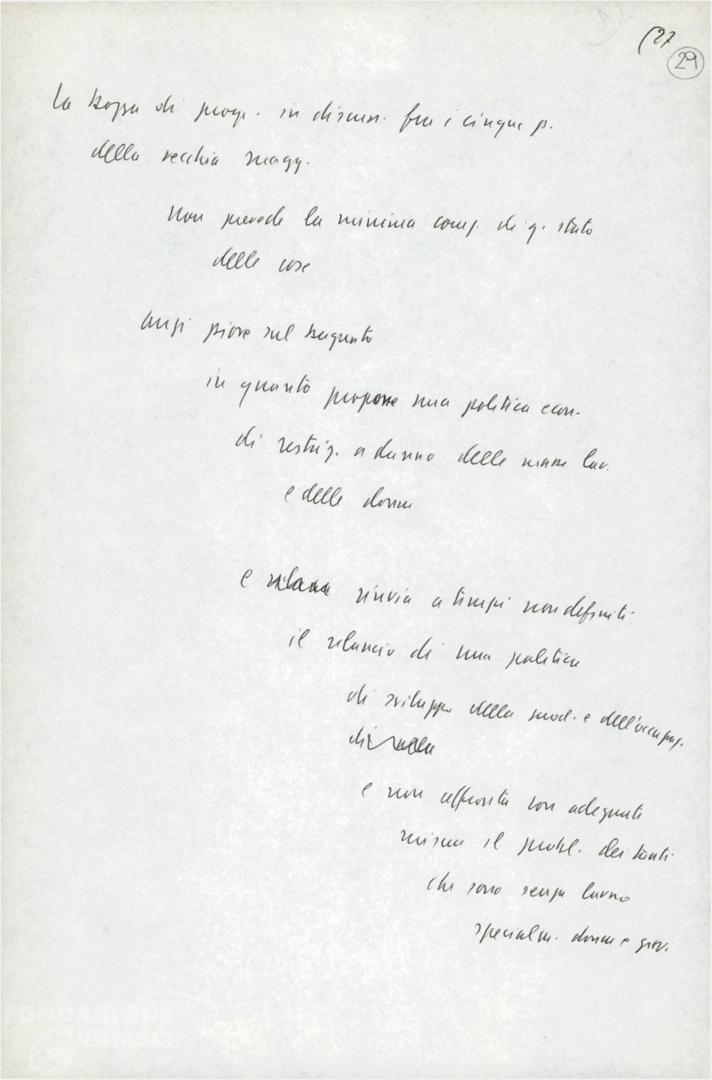 (27
29
la bozza di progr. in discuss. fra i cinque p.
della vecchia magg.
Non prevede la minima comp. di q. stato
delle cose
anzi piove sul bagnato
in quanto propone una politica econ.
di restriz. a danno delle masse lav.
e delle donne
e rinvia a tempi non definiti
il rilancio di una politica
di sviluppo della prod. e dell'occupaz.
e non affronta con adeguate
misure il probl. dei tanti
che sono senza lavoro
specialm. donne e giov.
FONDAZIONE
GRAMSCI